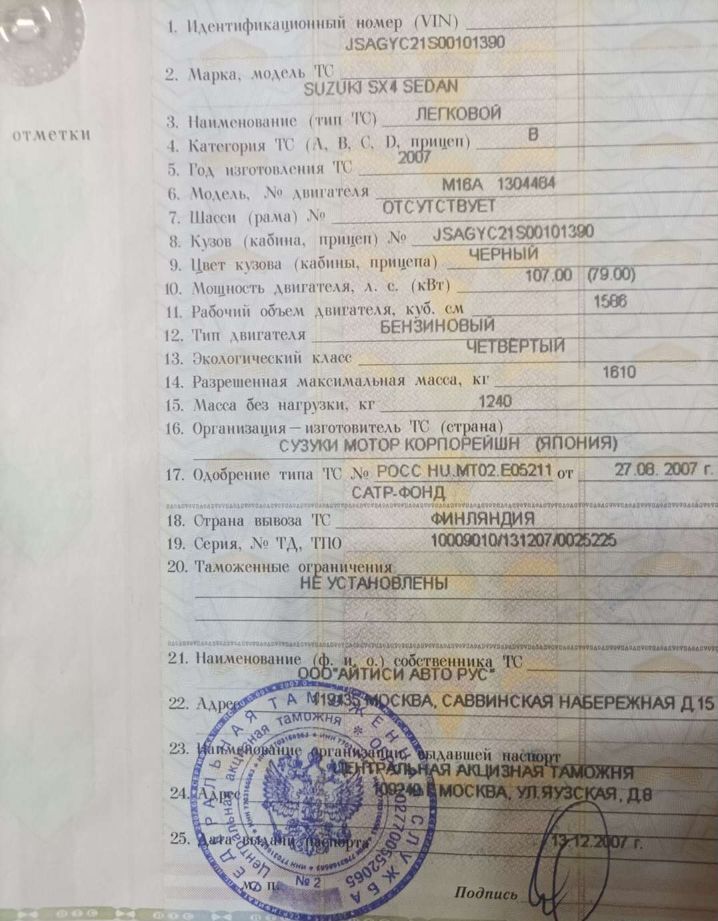 1. Идентификационный номер (VIN)
JSAGYC21S00101390
2. Марка, модель ТС
SUZUKI SX4 SEDAN
отметки
3. Наименование (тип ТС) ЛЕГКОВОЙ
4. Категория ТС (А, В, С, D, прицеп) В
5. Год изготовления ТС 2007
6. Модель, № двигателя M16A 1304484
7. Шасси (рама) № ОТСУТСТВУЕТ
8. Кузов (кабина, прицеп) № JSAGYC21S00101390
9. Цвет кузова (кабины, прицепа) ЧЕРНЫЙ
10. Мощность двигателя, л. с. (кВт) 107.00 (79.00)
11. Рабочий объем двигателя, куб. см 1586
12. Тип двигателя БЕНЗИНОВЫЙ
13. Экологический класс ЧЕТВЕРТЫЙ
14. Разрешенная максимальная масса, кг 1610
15. Масса без нагрузки, кг 1240
16. Организация–изготовитель ТС (страна)
СУЗУКИ МОТОР КОРПОРЕЙШН (ЯПОНИЯ)
17. Одобрение типа ТС № РОСС HU.MT02.E05211 от 27.08.2007 г.
САТР-ФОНД
18. Страна вывоза ТС ФИНЛЯНДИЯ
19. Серия, № ТД, ТПО 10009010/131207/0025225
20. Таможенные ограничения
НЕ УСТАНОВЛЕНЫ
21. Наименование (ф. и. о.) собственника ТС
ООО"АЙТИСИ АВТО РУС"
22. Адрес 119435 МОСКВА, САВВИНСКАЯ НАБЕРЕЖНАЯ Д.15
23. Наименование организации, выдавшей паспорт
ЦЕНТРАЛЬНАЯ АКЦИЗНАЯ ТАМОЖНЯ
24. Адрес 109240 Г МОСКВА, УЛ.ЯУЗСКАЯ, Д.8
25. Дата выдачи паспорта 13.12.2007 г.
М. П.
Подпись
ФЕДЕРАЛЬНАЯ ТАМОЖЕННАЯ СЛУЖБА
Центральная акцизная таможня
№ 2